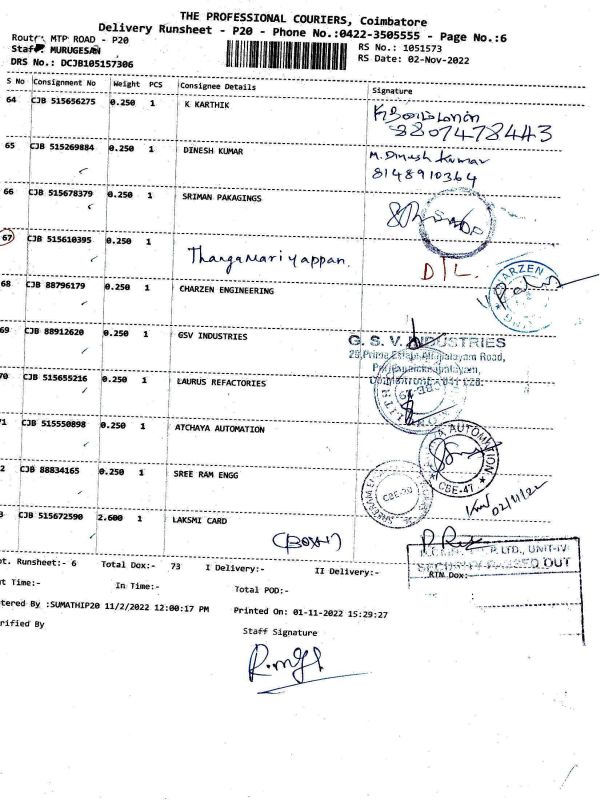 THE PROFESSIONAL COURIERS, Coimbatore
Delivery Runsheet - P20 - Phone No.:0422-3505555 - Page No.:6
Route: MTP ROAD - P20 RS No.: 1051573
Staff: MURUGESAN RS Date: 02-Nov-2022
DRS No.: DCJB105157306
S No Consignment No Weight PCS Consignee Details Signature
64 CJB 515656275 0.250 1 K KARTHIK
8807478443
65 CJB 515269884 0.250 1 DINESH KUMAR M. Dinesh Kumar
8148910364
66 CJB 515678379 0.250 1 SRIMAN PAKAGINGS
67 CJB 515610395 0.250 1 Thangamariyappan. D/L.
68 CJB 88796179 0.250 1 CHARZEN ENGINEERING
CHARZEN
69 CJB 88912620 0.250 1 GSV INDUSTRIES G. S. V. INDUSTRIES
Road,
70 CJB 515655216 0.250 1 LAURUS REFACTORIES
71 CJB 515550898 0.250 1 ATCHAYA AUTOMATION
AUTOMATION
CBE-47
2 CJB 88834165 0.250 1 SREE RAM ENGG
02/11/22
3 CJB 515672590 2.600 1 LAKSMI CARD
(BOX1)
P. LTD., UNIT-IV
SECURITY PASSED OUT
ot. Runsheet:- 6 Total Dox:- 73 I Delivery:- II Delivery:- RTN Dox:-
ut Time:- In Time:- Total POD:-
tered By :SUMATHIP20 11/2/2022 12:00:17 PM Printed On: 01-11-2022 15:29:27
rified By
Staff Signature